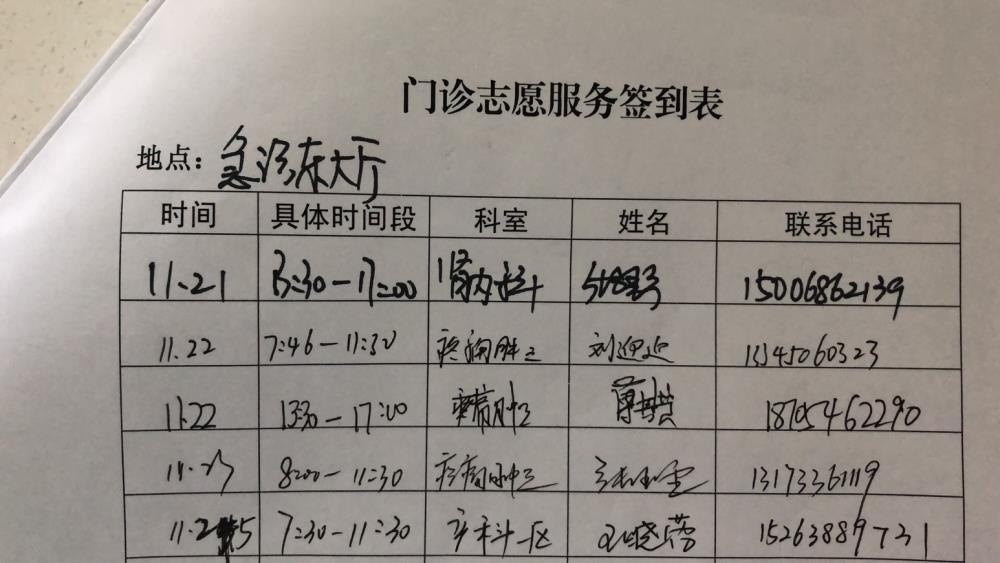 门诊志愿服务签到表
地点：急诊东大厅
时间 具体时间段 科室 姓名 联系电话
11.21 13:30-17:00 肾内科 15006862139
11.22 7:46-11:30 刘迎迎 13145060323
11.22 13:30-17:00 18705462290
11.23 8:00-11:30 13173361119
11.25 7:30-11:30 产科一区 王晓蓉 15263889731